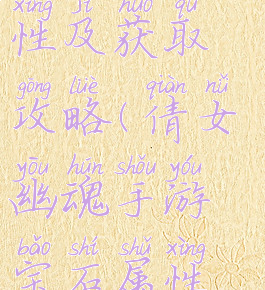 xìng jí huò qǔ
性及获取
gōng lüè qiàn nǚ
攻略(倩女
yōu hún shǒu yóu
幽魂手游
bǎo shí shǔ xìng
宝石属性